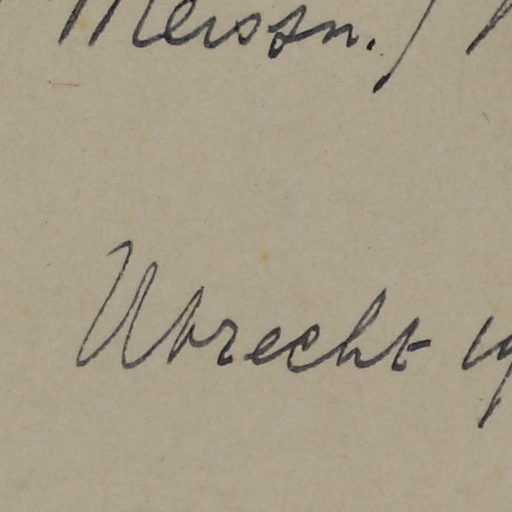 Meissn.)
Utrecht